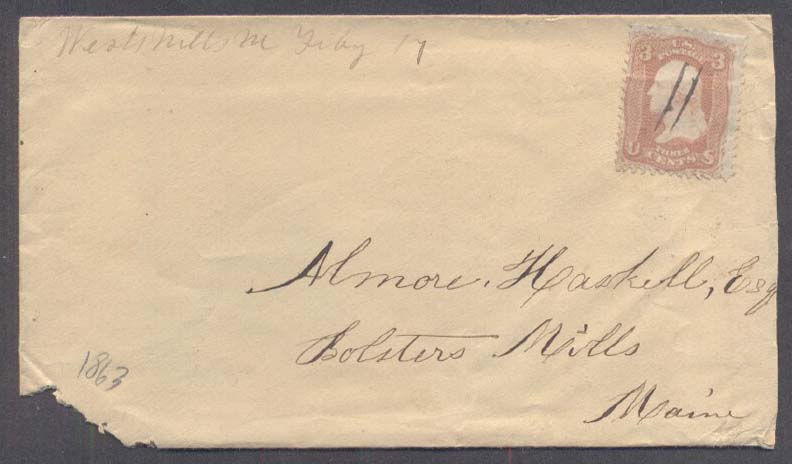 West Mills M Feby 17
3 U.S. 3
POSTAGE
U THREE S
CENTS
Almore Haskell, Esq
Bolsters Mills
Maine
1863